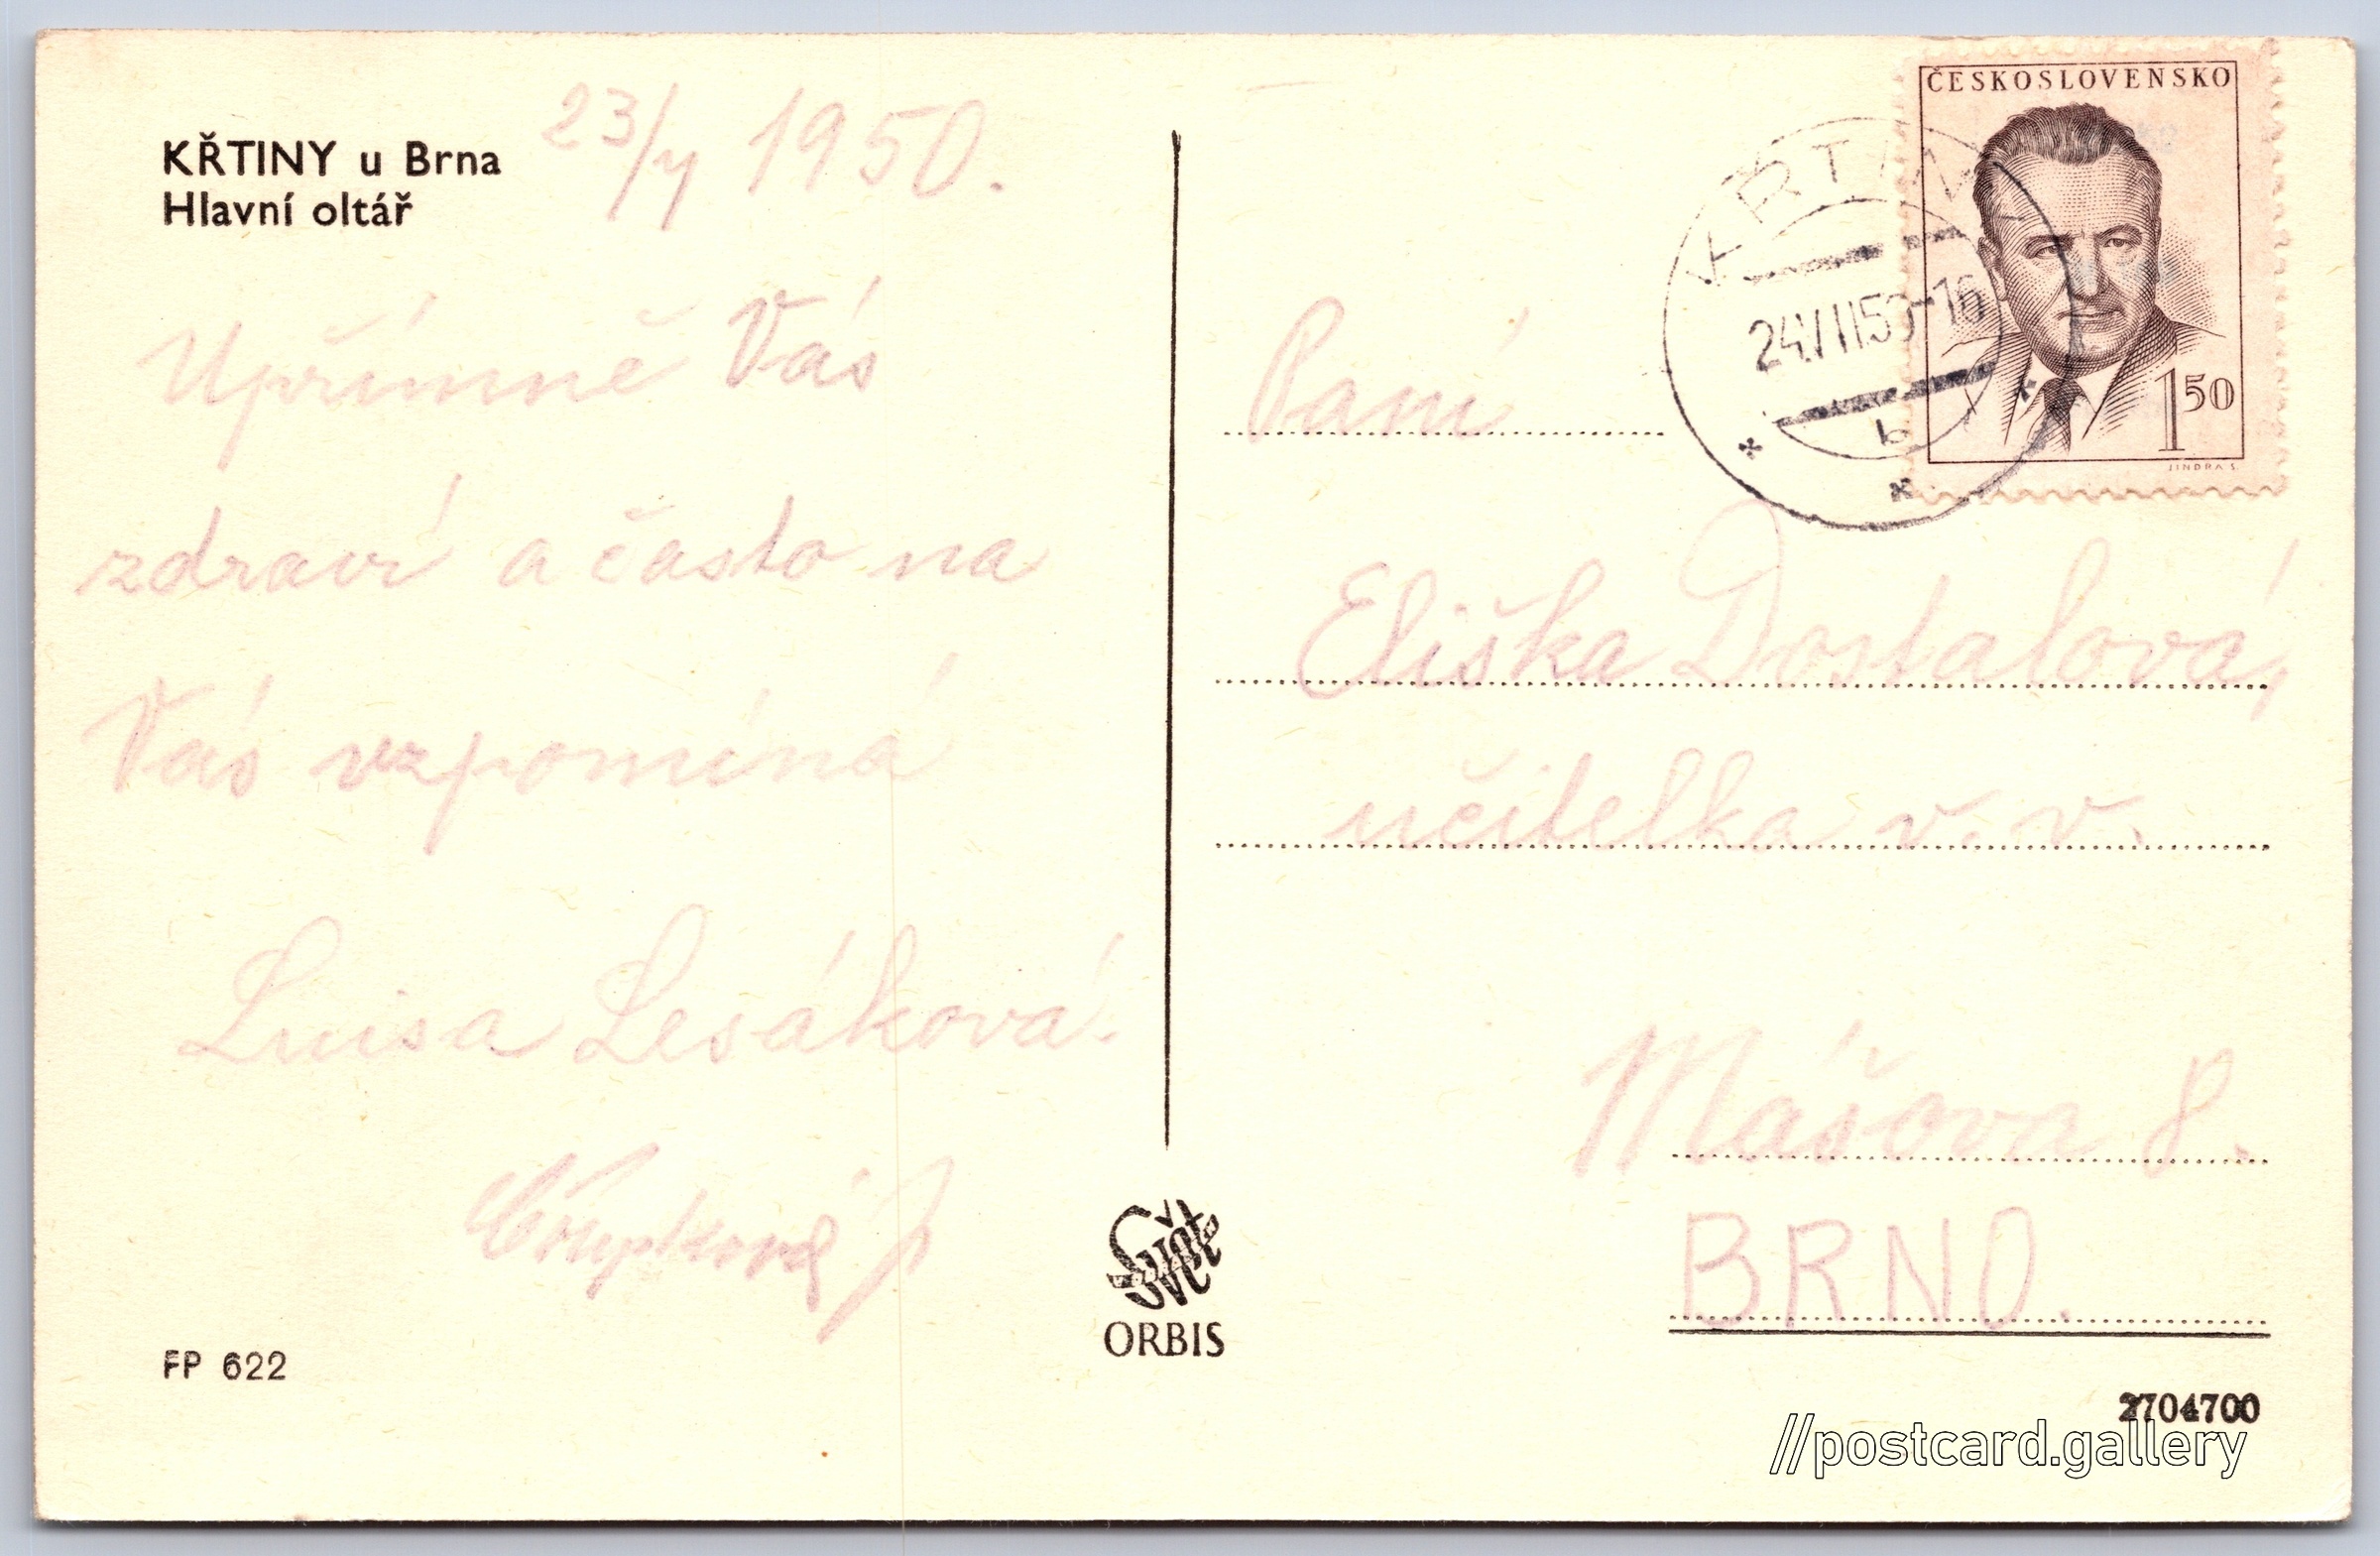 KŘTINY u Brna
Hlavní oltář
23/ 1950.
Upřímně Vás
zdraví a často na
Vás vzpomíná
Luisa Lesáková.
FP 622
Svět
ORBIS
ČESKOSLOVENSKO
1 50
JINDRA S.
KŘTINY
b
Paní
Eliška Dostalová,
učitelka v. v.
Mášova 8.
BRNO.
2704700
//postcard.gallery